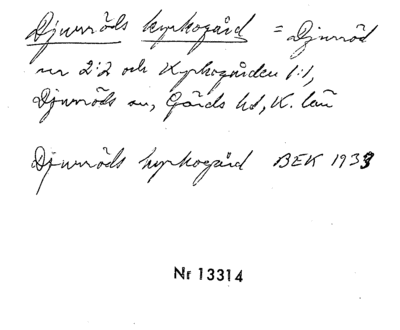 Djurröds kyrkogård = Djurröd
nr 2:2 och Kyrkogården 1:1,
Djurröds sn, Gärds hd, K. län
Djurröds kyrkogård BEK 1933
Nr 13314